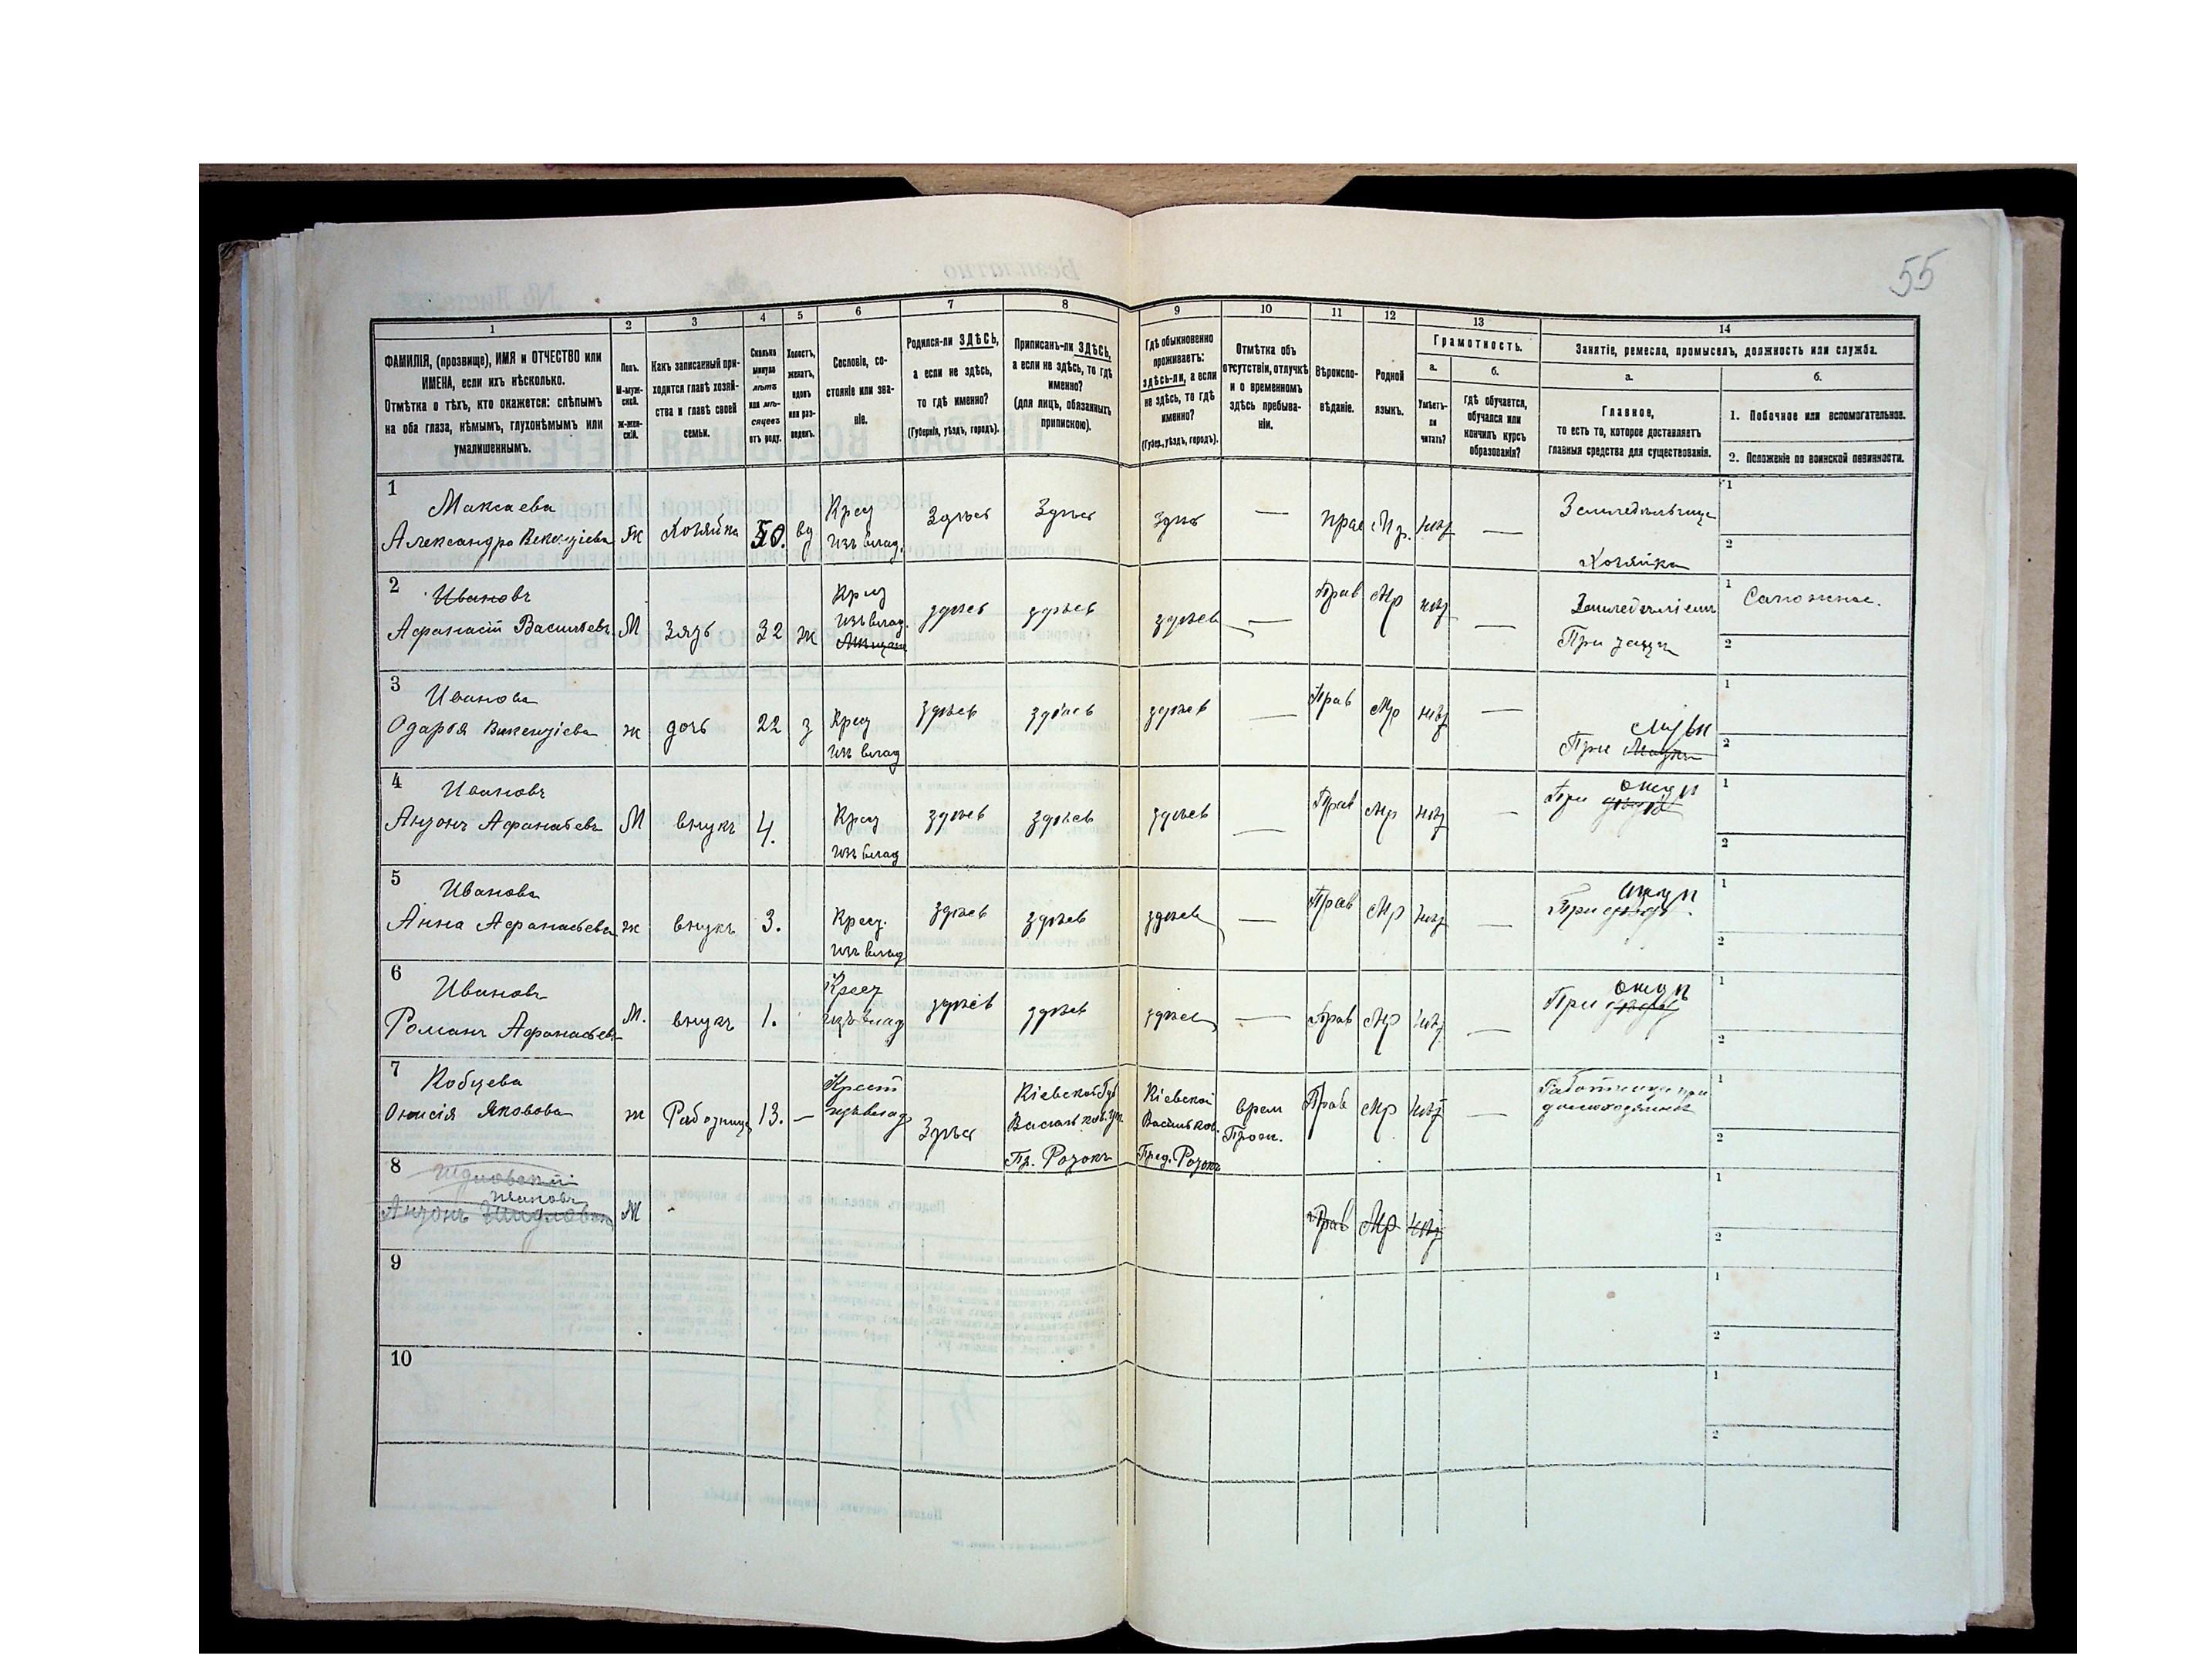 55
1
2
3
4
5
6
7
8
9
10
11
12
13
14
ФАМИЛІЯ, (прозвище), ИМЯ и ОТЧЕСТВО или
ИМЕНА, если ихъ нѣсколько.
Отмѣтка о тѣхъ, кто окажется: слѣпымъ
на оба глаза, нѣмымъ, глухонѣмымъ или
умалишеннымъ.
Полъ.
М-муж-
ской.
Ж-жен-
скій.
Какъ записанный при-
ходится главѣ хозяй-
ства и главѣ своей
семьи.
Сколько
минуло
лѣтъ
или мѣ-
сяцевъ
отъ роду.
Холостъ,
женатъ,
вдовъ
или раз-
веденъ.
Сословіе, со-
стояніе или зва-
ніе.
Родился-ли ЗДѢСЬ,
а если не здѣсь,
то гдѣ именно?
(Губернія, уѣздъ, городъ).
Приписанъ-ли ЗДѢСЬ,
а если не здѣсь, то гдѣ
именно?
(для лицъ, обязанныхъ
припискою).
Гдѣ обыкновенно
проживаетъ:
здѣсь-ли, а если
не здѣсь, то гдѣ
именно?
(Губер., уѣздъ, городъ).
Отмѣтка объ
отсутствіи, отлучкѣ
и о временномъ
здѣсь пребыва-
ніи.
Вѣроиспо-
вѣданіе.
Родной
языкъ.
Грамотность.
а.
Умѣетъ-
ли
читать?
б.
гдѣ обучается,
обучался или
кончилъ курсъ
образованія?
Занятіе, ремесло, промыселъ, должность или служба.
а.
Главное,
то есть то, которое доставляетъ
главныя средства для существованія.
б.
1. Побочное или вспомогательное.
2. Положеніе по воинской повинности.
1
Максаева
Александра Викентіева Ж Хозяйка 50. вд Крест изъ влад. Здѣсь Здѣсь Здѣсь — прав Мр. нѣт —
Земледѣльица
Хозяйка
1
2
2
Ивановъ
Афанасій Васильевъ М зять 32 ж Крест изъ влад. здѣсь здѣсь здѣсь — Прав Мр нѣт —
При тещи
1 Сапожное.
2
3
Иванова
Одарья Викентіева ж дочь 22 з Крест изъ влад здѣсь здѣсь здѣсь — Прав Мр нѣт —
При мужи
1
2
4
Ивановъ
Антонъ Афанасьевъ М внукъ 4. Крест изъ влад здѣсь здѣсь здѣсь — Прав Мр нѣт —
При отцѣ
1
2
5
Иванова
Анна Афанасьева ж внукъ 3. Крест. изъ влад здѣсь здѣсь здѣсь — Прав Мр нѣт —
При отцѣ
1
2
6
Ивановъ
Романъ Афанасьевъ М. внукъ 1. Крест изъ влад здѣсь здѣсь здѣсь — Прав Мр нѣт —
При отцѣ
1
2
7
Кобцева
Онисія Яковова ж Работница 13. — Крест изъ влад Здѣсь
Кіевской Губ
Васильков. уѣз.
Пр. Розокъ
Кіевской
Васильков.
Пред. Розокъ
врем
Прож.
Прав Мр нѣт —
Работница при
домохозяинѣ
1
2
8
Шдловскій
Ивановъ
Антонъ М Прав Мр нѣт
1
2
9
1
2
10
1
2